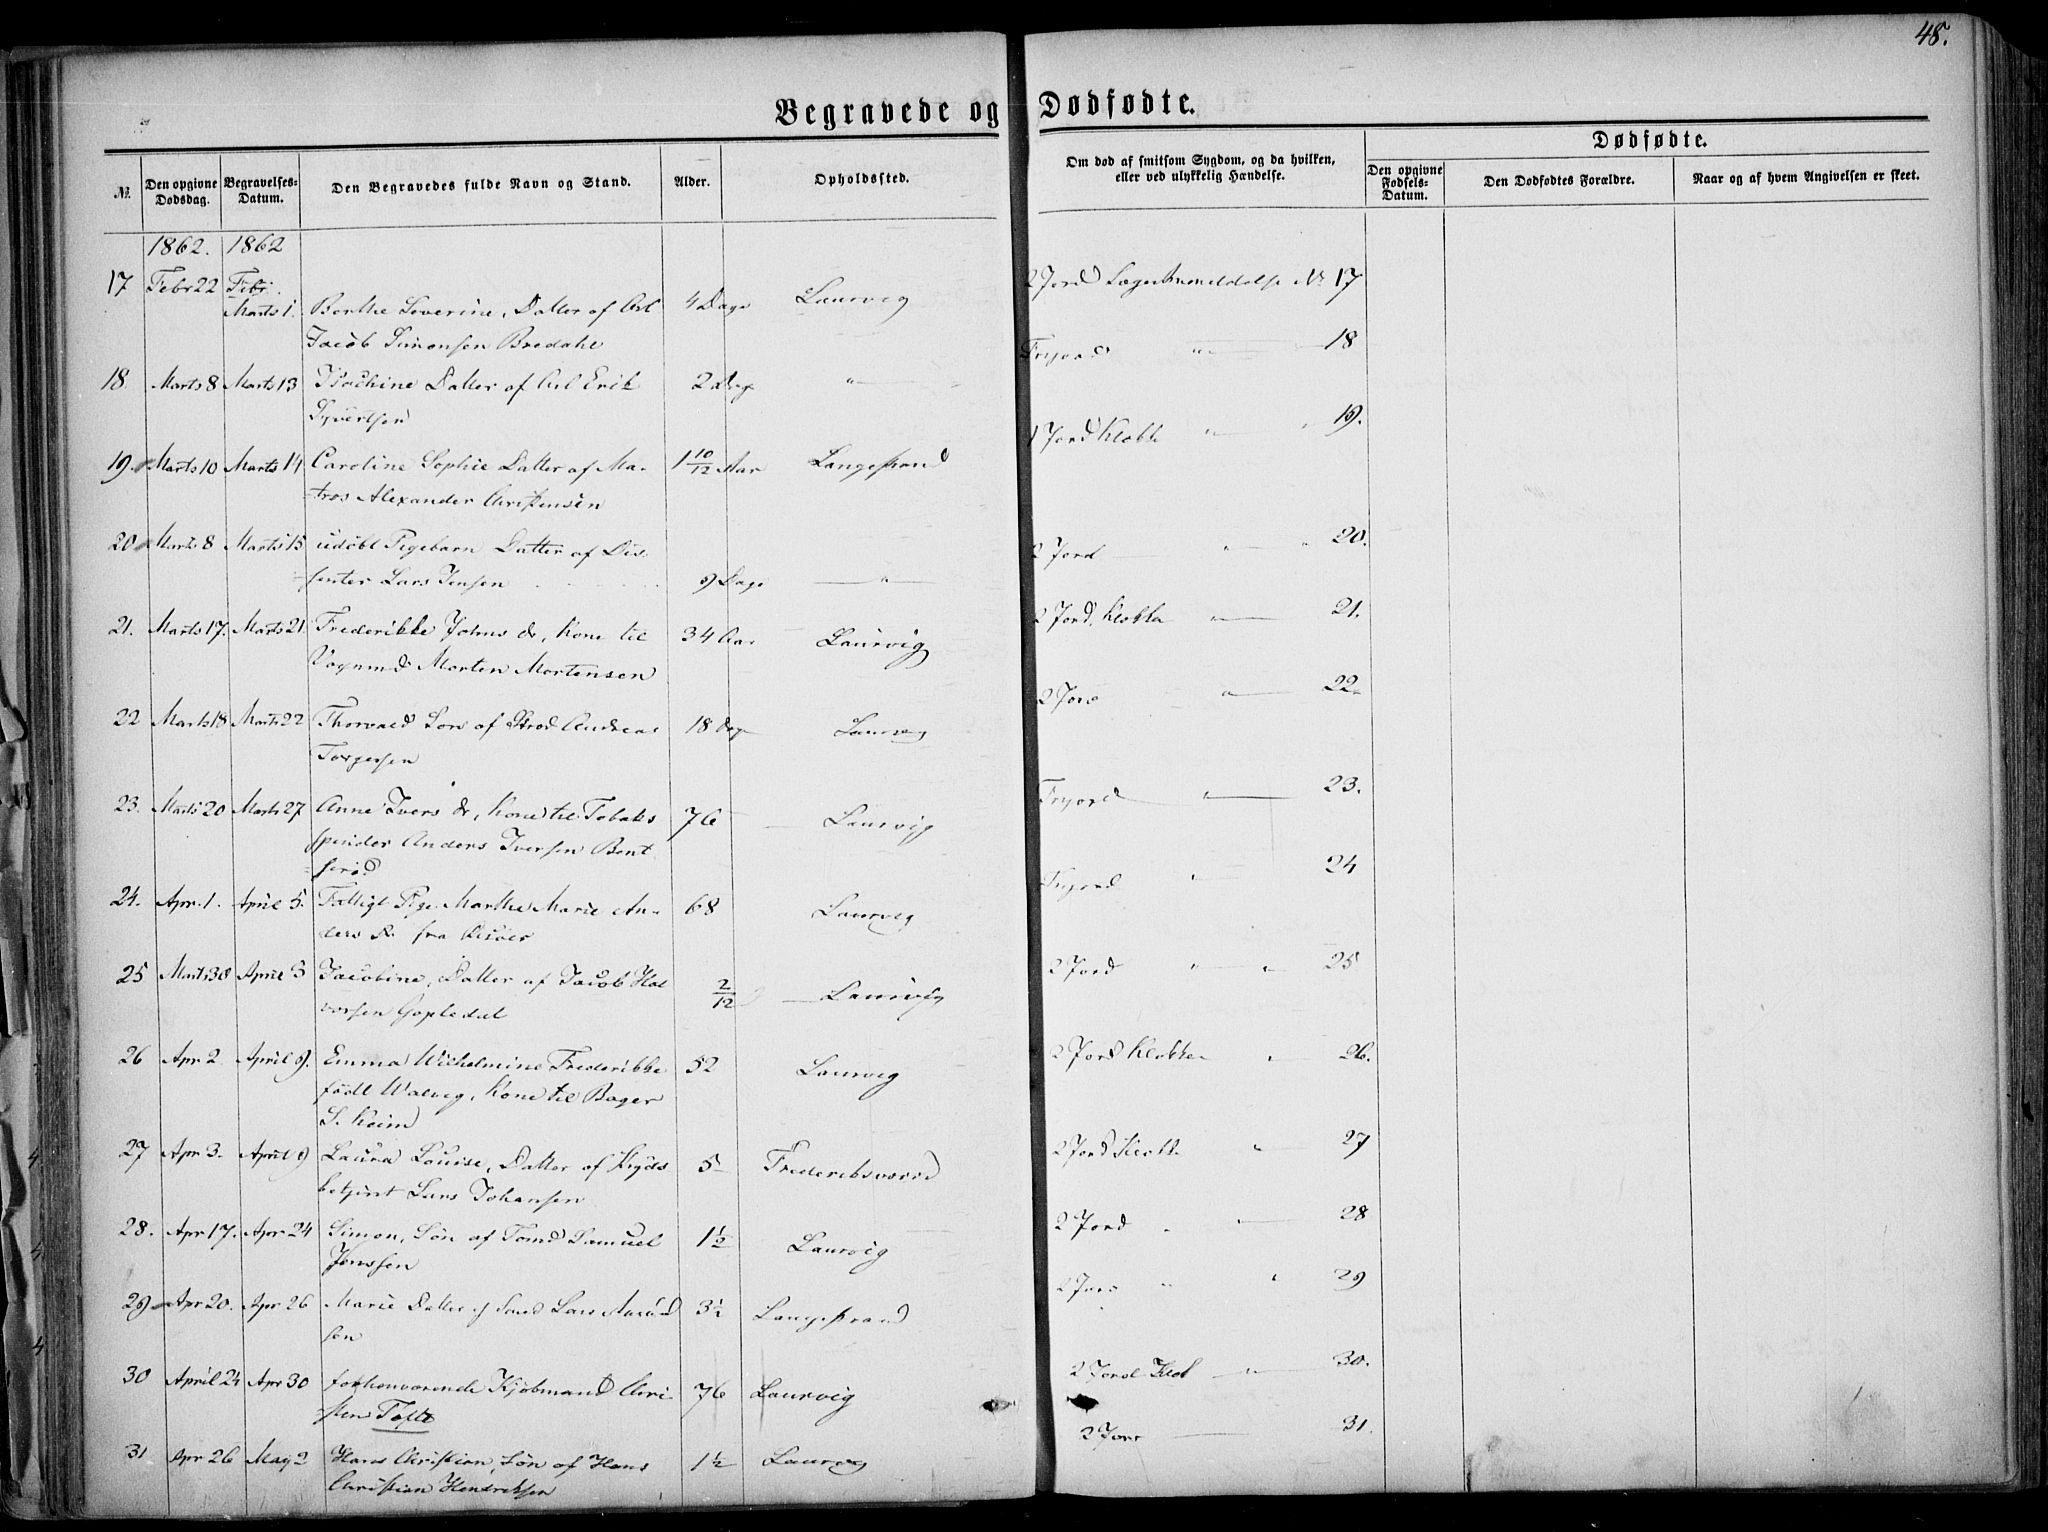 48.
Begravede og Dødfødte.
№ Den opgivne Dødsdag. Begravelses-Datum. Den Begravedes fulde Navn og Stand. Alder. Opholdssted. Om død af smitsom Sygdom, og da hvilken, eller ved ulykkelig Hændelse. Dødfødte.
Den opgivne Fødsels-Datum. Den Dødfødtes Forældre. Naar og af hvem Angivelsen er skeet.
1862. 1862
17 Febr 22 Febr. Marts 1. Berthe Severine, Datter af Arb 4 Dage Laurvig 2 Jord № 17
Jacob Simonsen Bredahl
18 Marts 8 Marts 13 Datter af Arb Erik 2 Dage " Frijord " 18
Syvertsen
19. Marts 10 Marts 14 Caroline Sophie Datter af Ma- 1 10/12 Aar Langestrand 1 Jord Klokke " 19.
-tros Alexander Christensen
20 Marts 8 Marts 15 udøbt Pigebarn Datter af Dis-
senter Lars Jensen 9 Dage " 2 Jord " 20.
21. Marts 17. Marts 21 Frederikke Johns dr, Kone til 34 Aar Laurvig 2 Jord, Klokke " 21.
Vognmd Morten Mortensen
22 Marts 18 Marts 22 Thorvald Søn af Andreas 18 Dage Laurvig 2 Jord " 22.
Torgersen
23. Marts 20 Marts 27 Anne Ivers dr, Kone til Tobaks 76 Laurvig Frijord " 23.
spinder Anders Iversen Bent
-serød
24. Apr. 1. April 5. Fattigt Pige Marthe Marie An- 68 Laurvig Frijord " 24
ders D. fra
25 Marts 30 April 3 Jacobine, Datter af Jacob Hal 2/12 Laurvig 2 Jord " 25
vorsen Gopledal
26 Apr 2 April 9. Emma Wilhelmine Frederikke 52 Laurvig 2 Jord Klokke " 26.
født Walvig, Kone til Bager
S. Heim
27 Apr 3. April 9 Laura Louise, Datter af Kryds 5 Frederiksværn 2 Jord Klokke " 27
betjent Lars Johansen
28. Apr 17. Apr 24 Simon, Søn af Tømd Samuel 1½ Laurvig 2 Jord " 28
Jonssen
29 Apr 20. Apr 26 Marie Datter af Lars 3½ Langestrand 2 Jord " 29
sen
30 April 24 Apr 30 forhenværende Kjøbmand Chri- 76 Laurvig 2 Jord Klok " 30.
-sten Tofte
31 Apr 26 May 2 Hans Christian, Søn af Hans 1½ Laurvig 2 Jord 31.
Christian Hendriksen